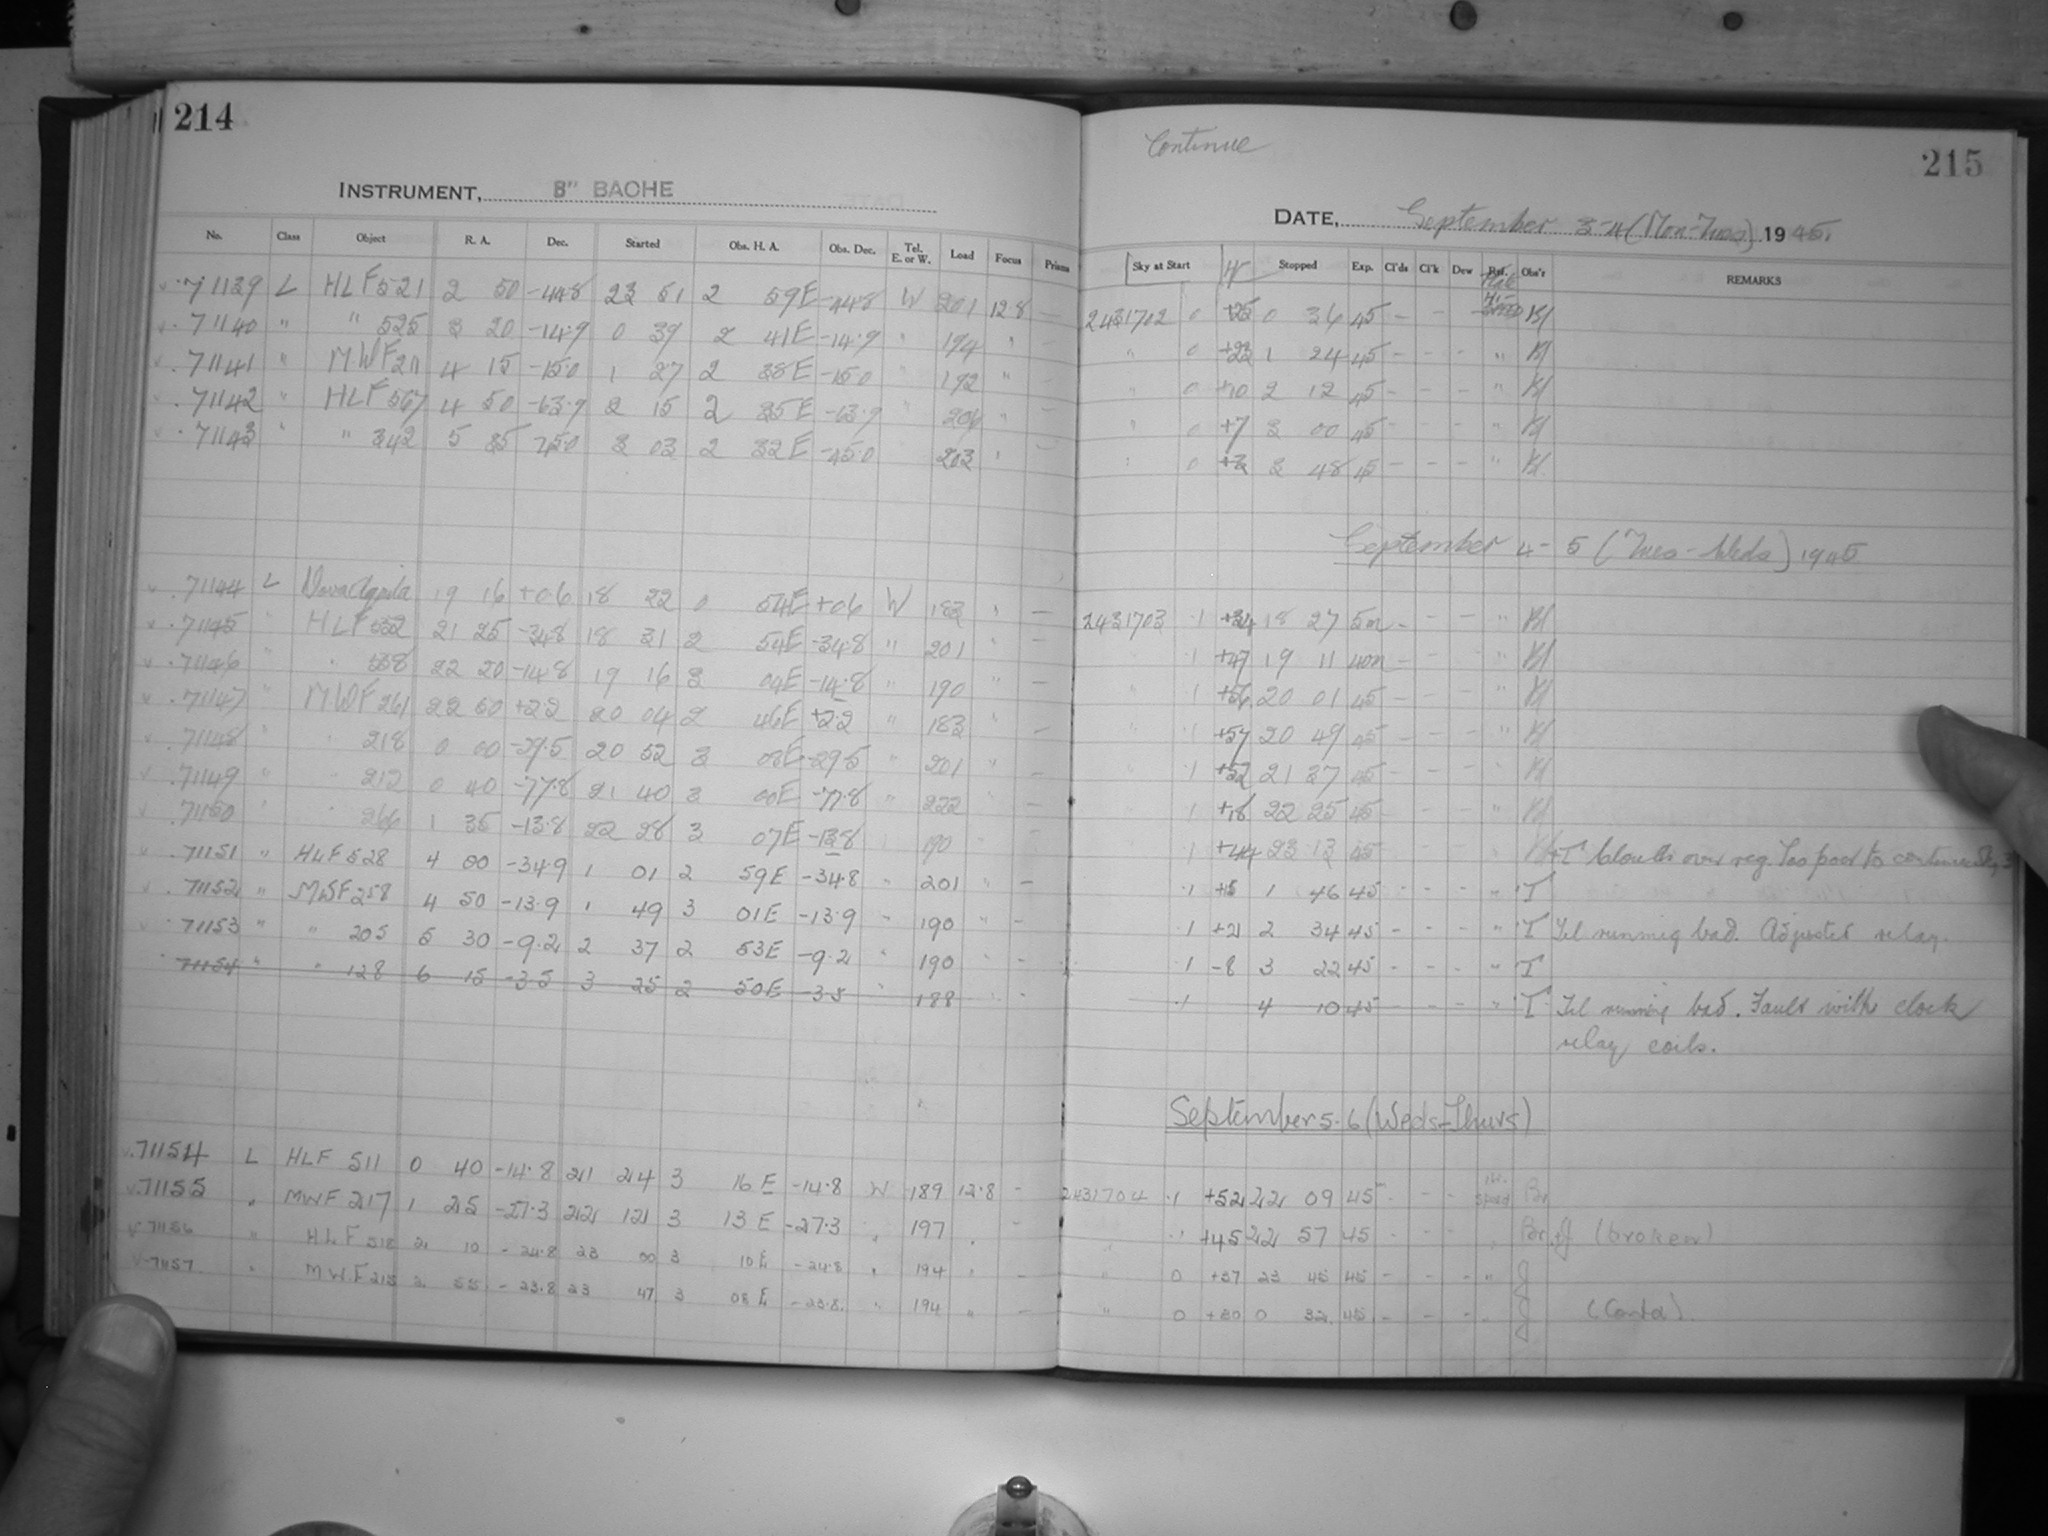 214
INSTRUMENT, 8" BACHE
No. Class Object R. A. Dec. Started Obs. H. A. Obs. Dec. Tel. E. or W. Load Focus Prisms
71139 L HLF 521 2 50 -44.8 23 51 2 59E -44.8 W 201 12.8 —
71140 " " 525 3 20 -14.9 0 39 2 41E -14.9 " 194 " —
71141 " MWF 211 4 15 -15.0 1 27 2 38E -15.0 " 192 " —
71142 " HLF 567 4 50 -63.9 2 15 2 25E -63.9 " 206 " —
71143 " " 342 5 35 -45.0 3 03 2 32E -45.0 203 " —
71144 L Nova Aquila 19 16 +0.6 18 22 0 54E +0.6 W 183 " —
71145 " HLF 532 21 25 -34.8 18 31 2 54E -34.8 " 201 "
71146 " " 538 22 20 -14.8 19 16 3 04E -14.8 " 190 " —
71147 " MWF 261 22 50 +2.2 20 04 2 46E +2.2 " 183 " —
71148 " " 218 0 00 -29.5 20 52 3 08E -29.5 " 201 " —
71149 " " 212 0 40 -77.8 21 40 3 00E -77.8 " 222 —
71150 " " 266 1 35 -13.8 22 28 3 07E -13.8 190
71151 " HLF 528 4 00 -34.9 1 01 2 59E -34.8 " 201 " —
71152 " MWF 258 4 50 -13.9 1 49 3 01E -13.9 " 190 " —
71153 " " 205 5 30 -9.2 2 37 2 53E -9.2 " 190 " —
71154 " " 128 6 15 -3.5 3 25 2 50E -3.5 " 188 —
71154 L HLF 511 0 40 -14.8 21 24 3 16E -14.8 W 189 12.8 —
71155 " MWF 217 1 25 -27.3 22 12 3 13E -27.3 " 197 " —
71156 " HLF 518 2 10 -24.8 23 00 3 10E -24.8 " 194 " —
71157 " MWF 215 2 55 -23.8 23 47 3 08E -23.8 " 194 " —
Continue
215
DATE, September 3-4 (Mon-Tues) 1945.
Sky at Start H Stopped Exp. Cl'ds Cl'k Dew Ref. Plate Obs'r REMARKS
2431702 0 +25 0 36 45 — — Hi-Speed Bl
" 0 +22 1 24 45 - - - " Bl
" 0 +10 2 12 45 - - - " Bl
" 0 +7 3 00 45 - - - " Bl
" 0 +3 3 48 45 - - - " Bl
September 4-5 (Tues-Weds) 1945
2431703 .1 +34 18 27 5m - - - " Bl
.1 +47 19 11 40m - - - " Bl
" .1 +56 20 01 45 - - - " Bl
" .1 +57 20 49 45 - - - " Bl
" .1 +52 21 37 45 - - - " Bl
.1 +18 22 25 45 - - - " Bl
.1 +44 23 13 45 - - - " Bl+T Clouds over reg. Too poor to continue
.1 +5 1 46 45 - - - " T
.1 +21 2 34 45 - - - " T Tel running bad. Adjusted relay.
.1 -8 3 22 45 - - - " T
.1 4 10 45 - - - " T Tel running bad. Fault with clock
relay coils.
September 5-6 (Weds-Thurs)
2431704 .1 +52 22 09 45m - - - Hi-Speed Br
" .1 +45 22 57 45 - - - " Br+J (broken)
" 0 +37 23 45 45 - - - " J
" 0 +30 0 32 45 - - - " J (Contd).